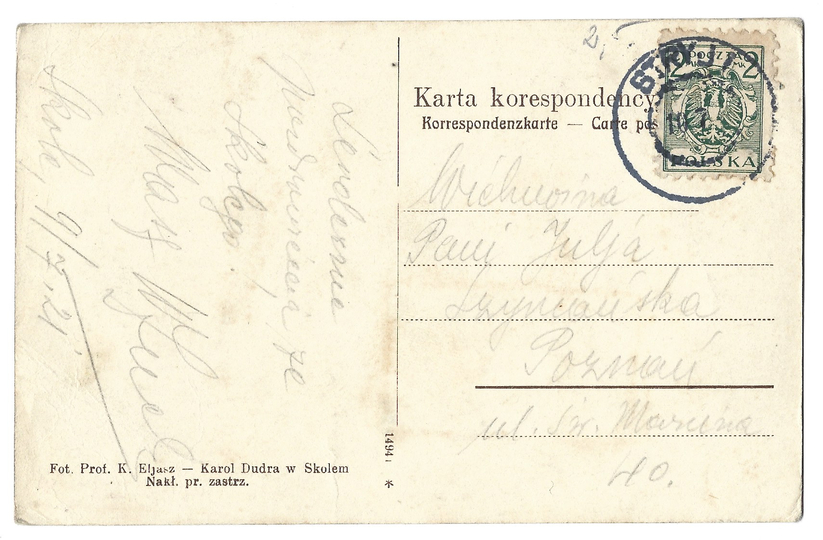 Karta korespondencyj
Korrespondenzkarte — Carte pos
STRYJ
2 POCZTA 2
POLSKA
Wielmożna
Pani Julja
Szymańska
Poznań
ul. Św. Marcina
40.
Serdeczne
ze
Skolego.
Wuj
Skole, 9/7.21.
Fot. Prof. K. Eljasz — Karol Dudra w Skolem
Nakł. pr. zastrz.
1494
*